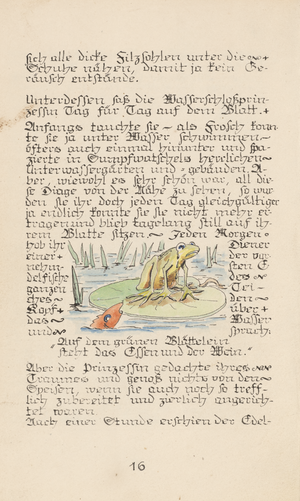 sich alle dicke Filzsohlen unter die
Schuhe nähen, damit ja kein Ge-
räusch entstände.
Unterdessen saß die Wasserschloßprin-
zessin Tag für Tag auf dem Blatt.
Anfangs tauchte sie - als Frosch konn-
te sie ja unter Wasser schwimmen -
öfters auch einmal hinunter und spa-
zierte in Sumpfwatschels herrlichen
Unterwassergärten und -gebäuden. A-
ber, wiewohl es sehr schön war, all die-
se Dinge von der Nähe zu sehen, so wur
den sie ihr doch jeden Tag gleichgültiger
ja endlich konnte sie sie nicht mehr er-
tragen und blieb tagelang still auf ih-
rem Blatte sitzen. Jeden Morgen
hob ihr Diener
einer der vor-
nehm- sten E
delfische des
ganzen Tei-
ches den
Kopf über
das Wasser
und sprach:
"Auf dem grünen Blättelein
steht das Essen und der Wein."
Aber die Prinzessin gedachte ihres
Traumes und genoß nichts von den
Speisen, wenn sie auch noch so treff-
lich zubereitet und zierlich angerich-
tet waren
Nach einer Stunde erschien der Edel-
16